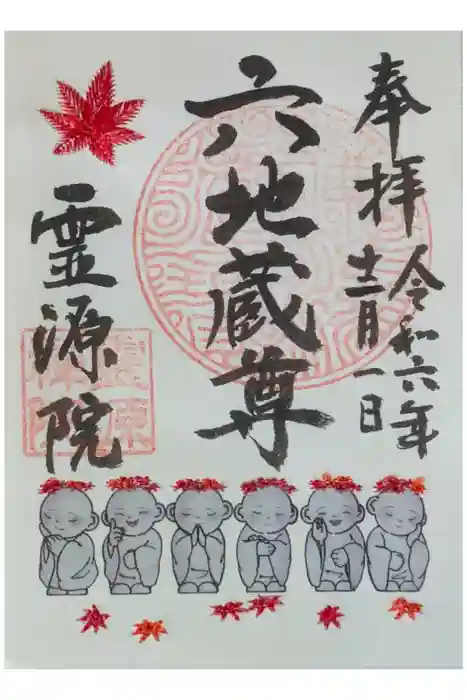 奉拝
令和六年
十二月一日
六地蔵尊
霊源院